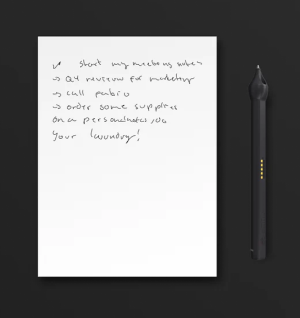 ✓ Start my meeting notes
→ Q4 review for marketing
→ call pablo
→ order some supplies
On a personal note, do
your laundry!